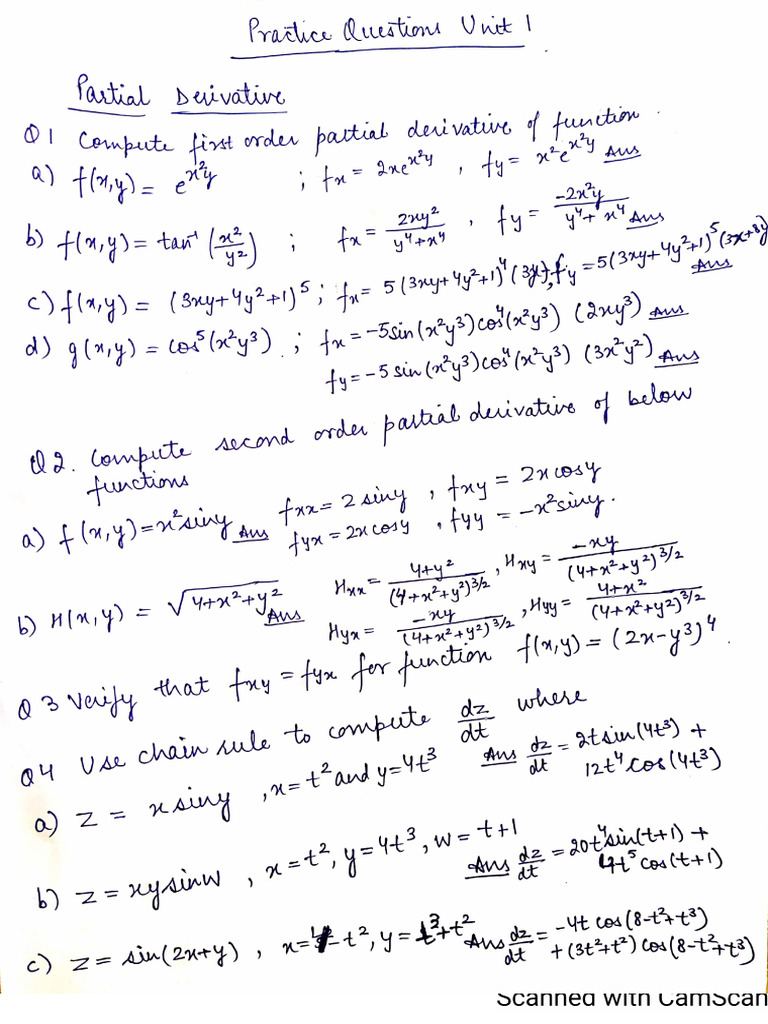 Practice Questions Unit 1
Partial Derivative
Q1 Compute first order partial derivative of function.
a) f(x,y) = e^{x²y} ; fx = 2xe^{x²y} , fy = x²e^{x²y} Ans
b) f(x,y) = tan⁻¹(x²/y²) ; fx = 2xy²/(y⁴+x⁴) , fy = -2x²y/(y⁴+x⁴) Ans
c) f(x,y) = (3xy+4y²+1)⁵ ; fx = 5(3xy+4y²+1)⁴(3y), fy = 5(3xy+4y²+1)⁵(3x+8y) Ans
d) g(x,y) = cos⁵(x²y³) ; fx = -5sin(x²y³)cos⁴(x²y³) (2xy³) Ans
fy = -5 sin(x²y³)cos⁴(x²y³) (3x²y²) Ans
Q2. Compute second order partial derivative of below
functions
a) f(x,y) = x²siny Ans fxx = 2 siny , fxy = 2x cosy
fyx = 2x cosy , fyy = -x²siny.
b) H(x,y) = √(4+x²+y²) Ans Hxx = (4+y²)/(4+x²+y²)^{3/2} , Hxy = -xy/(4+x²+y²)^{3/2}
Hyx = -xy/(4+x²+y²)^{3/2} , Hyy = (4+x²)/(4+x²+y²)^{3/2}
Q3 Verify that fxy = fyx for function f(x,y) = (2x-y³)⁴.
Q4 Use chain rule to compute dz/dt where
a) z = x siny , x = t² and y = 4t³ Ans dz/dt = 2t sin(4t³) +
12t⁴ cos(4t³)
b) z = xy sinw , x = t², y = 4t³, w = t+1 Ans dz/dt = 20t⁴ sin(t+1) +
4t⁵ cos(t+1)
c) z = sin(2x+y) , x = 4-t², y = t³+t² Ans dz/dt = -4t cos(8-t²+t³)
+ (3t²+t²) cos(8-t²+t³)
Scanned with CamScan